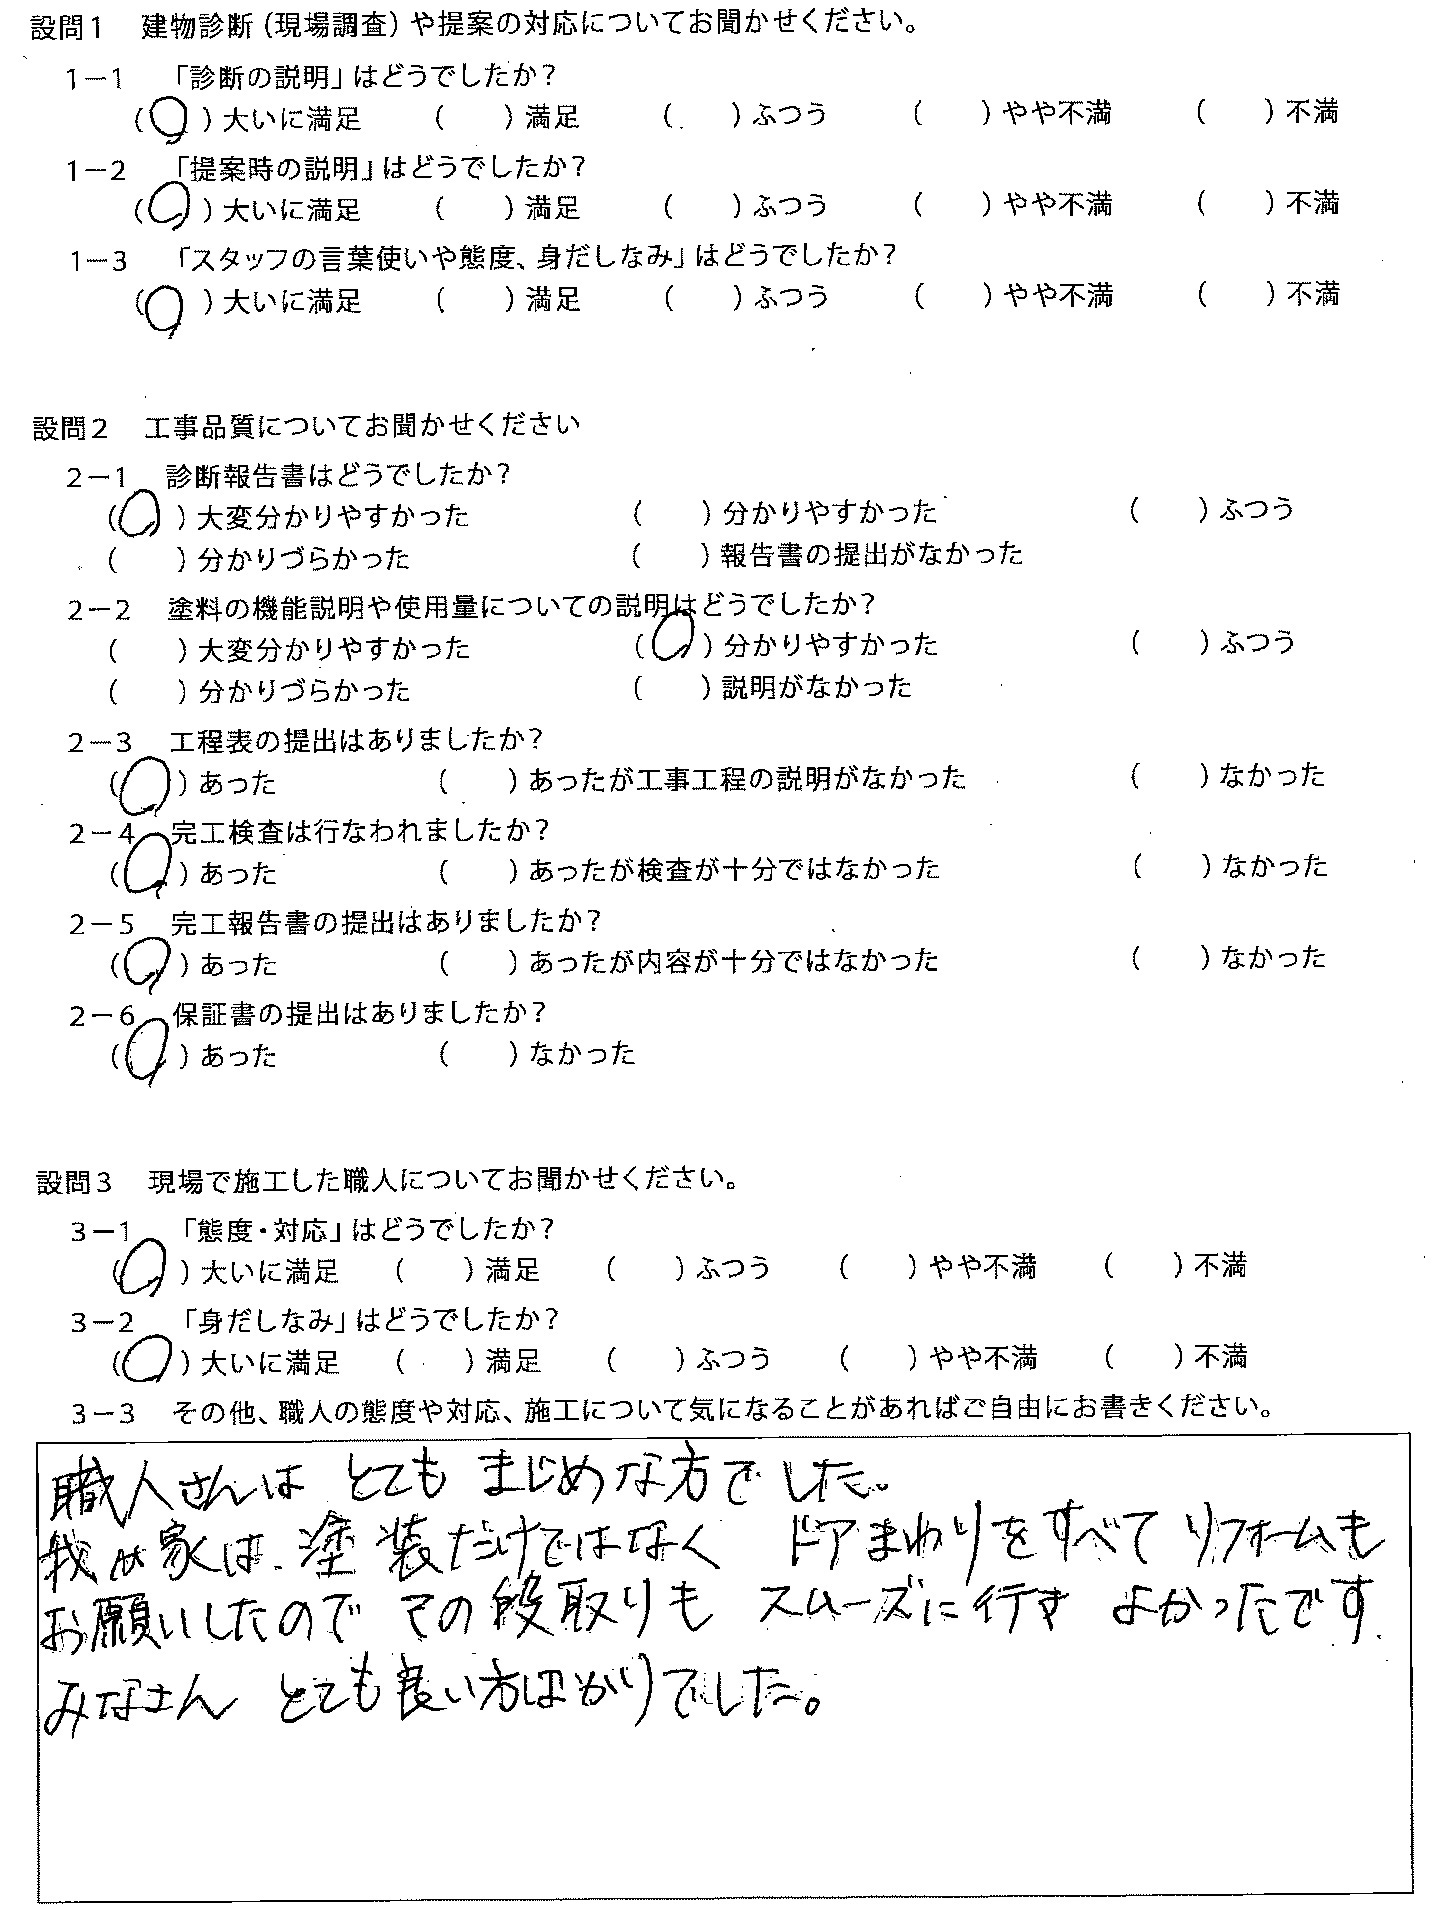 設問1 建物診断(現場調査)や提案の対応についてお聞かせください。
1-1 「診断の説明」はどうでしたか?
(○)大いに満足 ( )満足 ( )ふつう ( )やや不満 ( )不満
1-2 「提案時の説明」はどうでしたか?
(○)大いに満足 ( )満足 ( )ふつう ( )やや不満 ( )不満
1-3 「スタッフの言葉使いや態度、身だしなみ」はどうでしたか?
(○)大いに満足 ( )満足 ( )ふつう ( )やや不満 ( )不満
設問2 工事品質についてお聞かせください
2-1 診断報告書はどうでしたか?
(○)大変分かりやすかった ( )分かりやすかった ( )ふつう
( )分かりづらかった ( )報告書の提出がなかった
2-2 塗料の機能説明や使用量についての説明はどうでしたか?
( )大変分かりやすかった (○)分かりやすかった ( )ふつう
( )分かりづらかった ( )説明がなかった
2-3 工程表の提出はありましたか?
(○)あった ( )あったが工事工程の説明がなかった ( )なかった
2-4 完工検査は行なわれましたか?
(○)あった ( )あったが検査が十分ではなかった ( )なかった
2-5 完工報告書の提出はありましたか?
(○)あった ( )あったが内容が十分ではなかった ( )なかった
2-6 保証書の提出はありましたか?
(○)あった ( )なかった
設問3 現場で施工した職人についてお聞かせください。
3-1 「態度・対応」はどうでしたか?
(○)大いに満足 ( )満足 ( )ふつう ( )やや不満 ( )不満
3-2 「身だしなみ」はどうでしたか?
(○)大いに満足 ( )満足 ( )ふつう ( )やや不満 ( )不満
3-3 その他、職人の態度や対応、施工について気になることがあればご自由にお書きください。
職人さんは とても まじめな方でした。
我が家は、塗装だけではなく ドアまわりをすべて リフォームも
お願いしたので その段取りも スムーズに行き よかったです.
みなさん とても良い方ばかりでした。